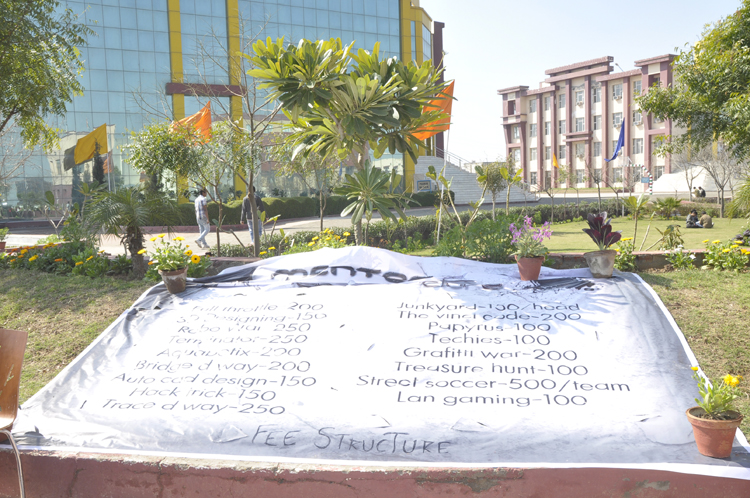 Full throttle-200
designing-150
Robo war-250
Terminator-250
-200
Bridge d way-200
Auto cad design-150
Hack trick-150
Trace d way-250
Junkyard-150/head
The vinci code-200
Papyrus-100
Techies-100
Grafitii war-200
Treasure hunt-100
Street soccer-500/team
Lan gaming-100
FEE STRUCTURE